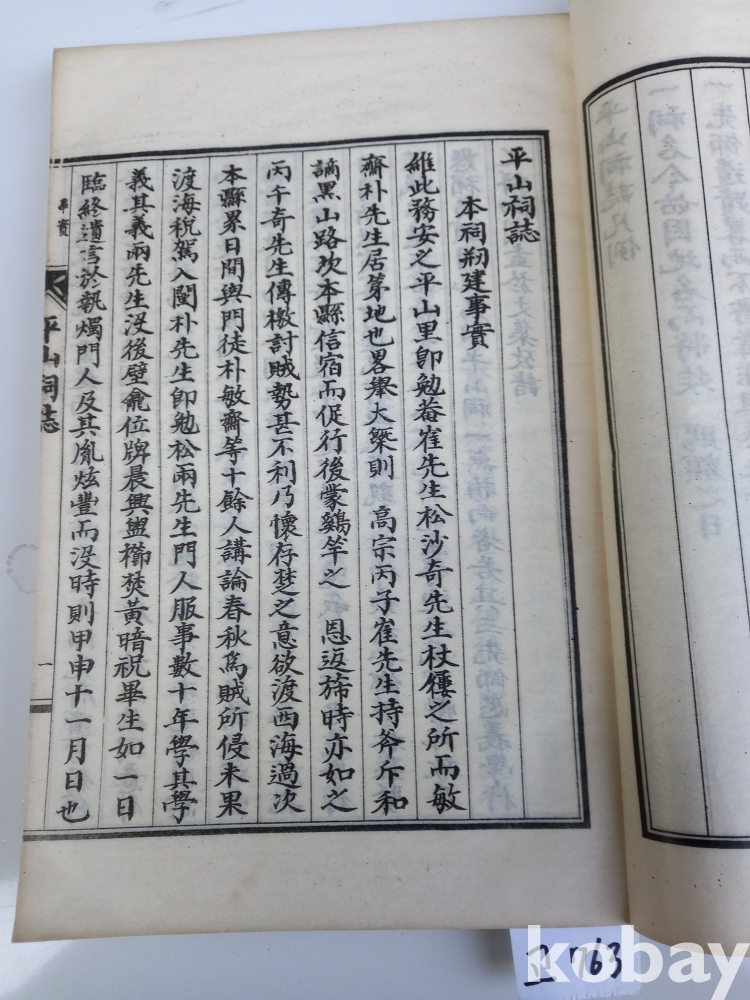 平山祠誌
本祠刱建事實
維此務安之平山里卽勉菴崔先生松沙奇先生杖屨之所而敏
齋朴先生居第地也畧擧大槩則 高宗丙子崔先生持斧斥和
謫黑山路次本縣信宿而促行後蒙鷄竿之 恩返旆時亦如之
丙午奇先生傳檄討賊勢甚不利乃懷存楚之意欲渡西海過次
本縣累日間與門徒朴敏齋等十餘人講論春秋爲賊所侵未果
渡海稅駕入閩朴先生卽勉松兩先生門人服事數十年學其學
義其義兩先生沒後壁龕位牌晨興盥櫛焚黃暗祝畢生如一日
臨終遺言於執燭門人及其胤炫豐而沒時則甲申十一月日也
事實
平山祠誌
一
kobay
고 763